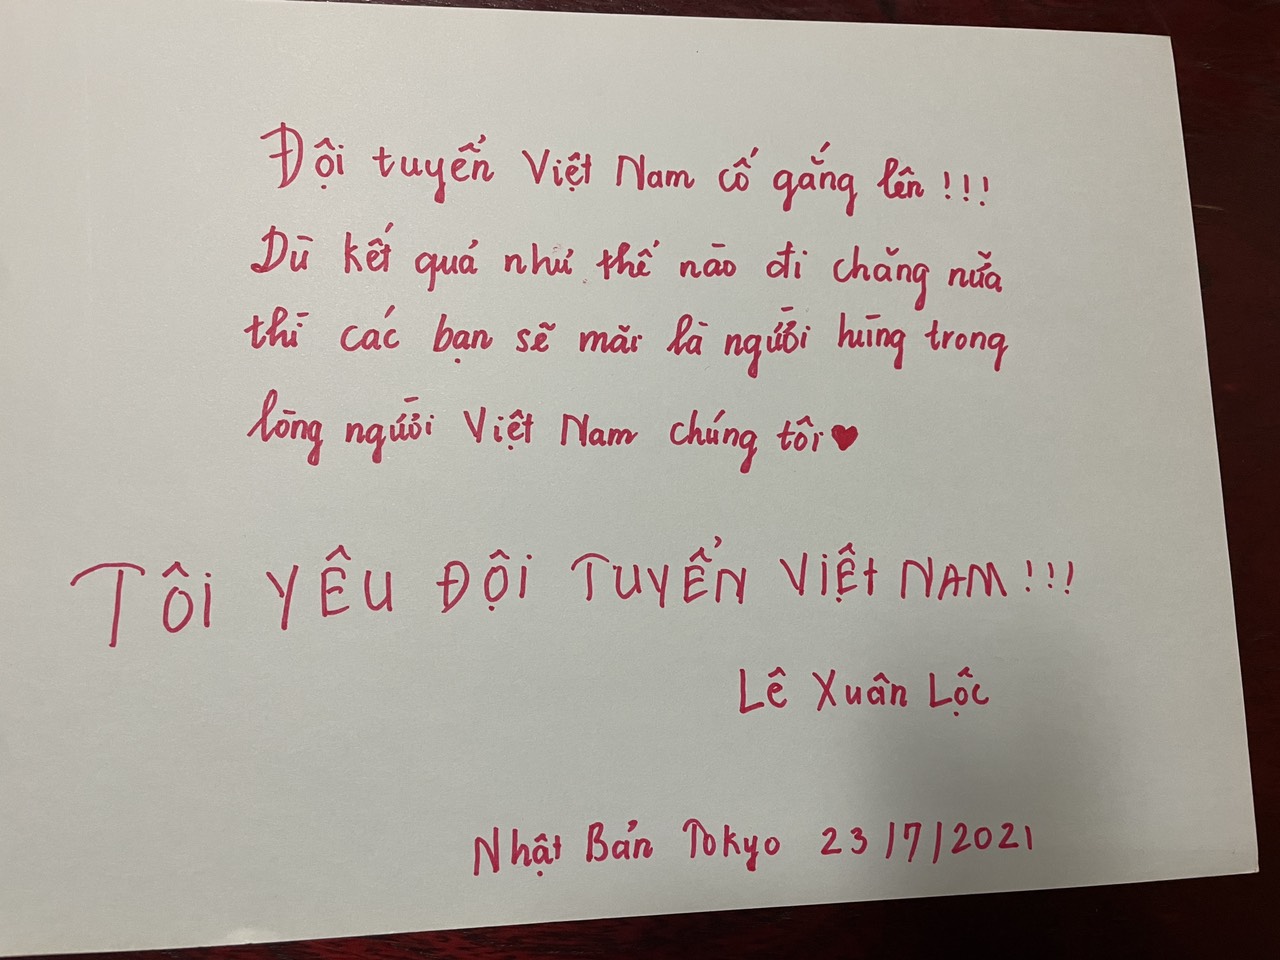 Đội tuyển Việt Nam cố gắng lên !!!
Dù kết quả như thế nào đi chăng nữa
thì các bạn sẽ mãi là người hùng trong
lòng người Việt Nam chúng tôi ♥
TÔI YÊU ĐỘI TUYỂN VIỆT NAM !!!
Lê Xuân Lộc
Nhật Bản Tokyo 23/7/2021